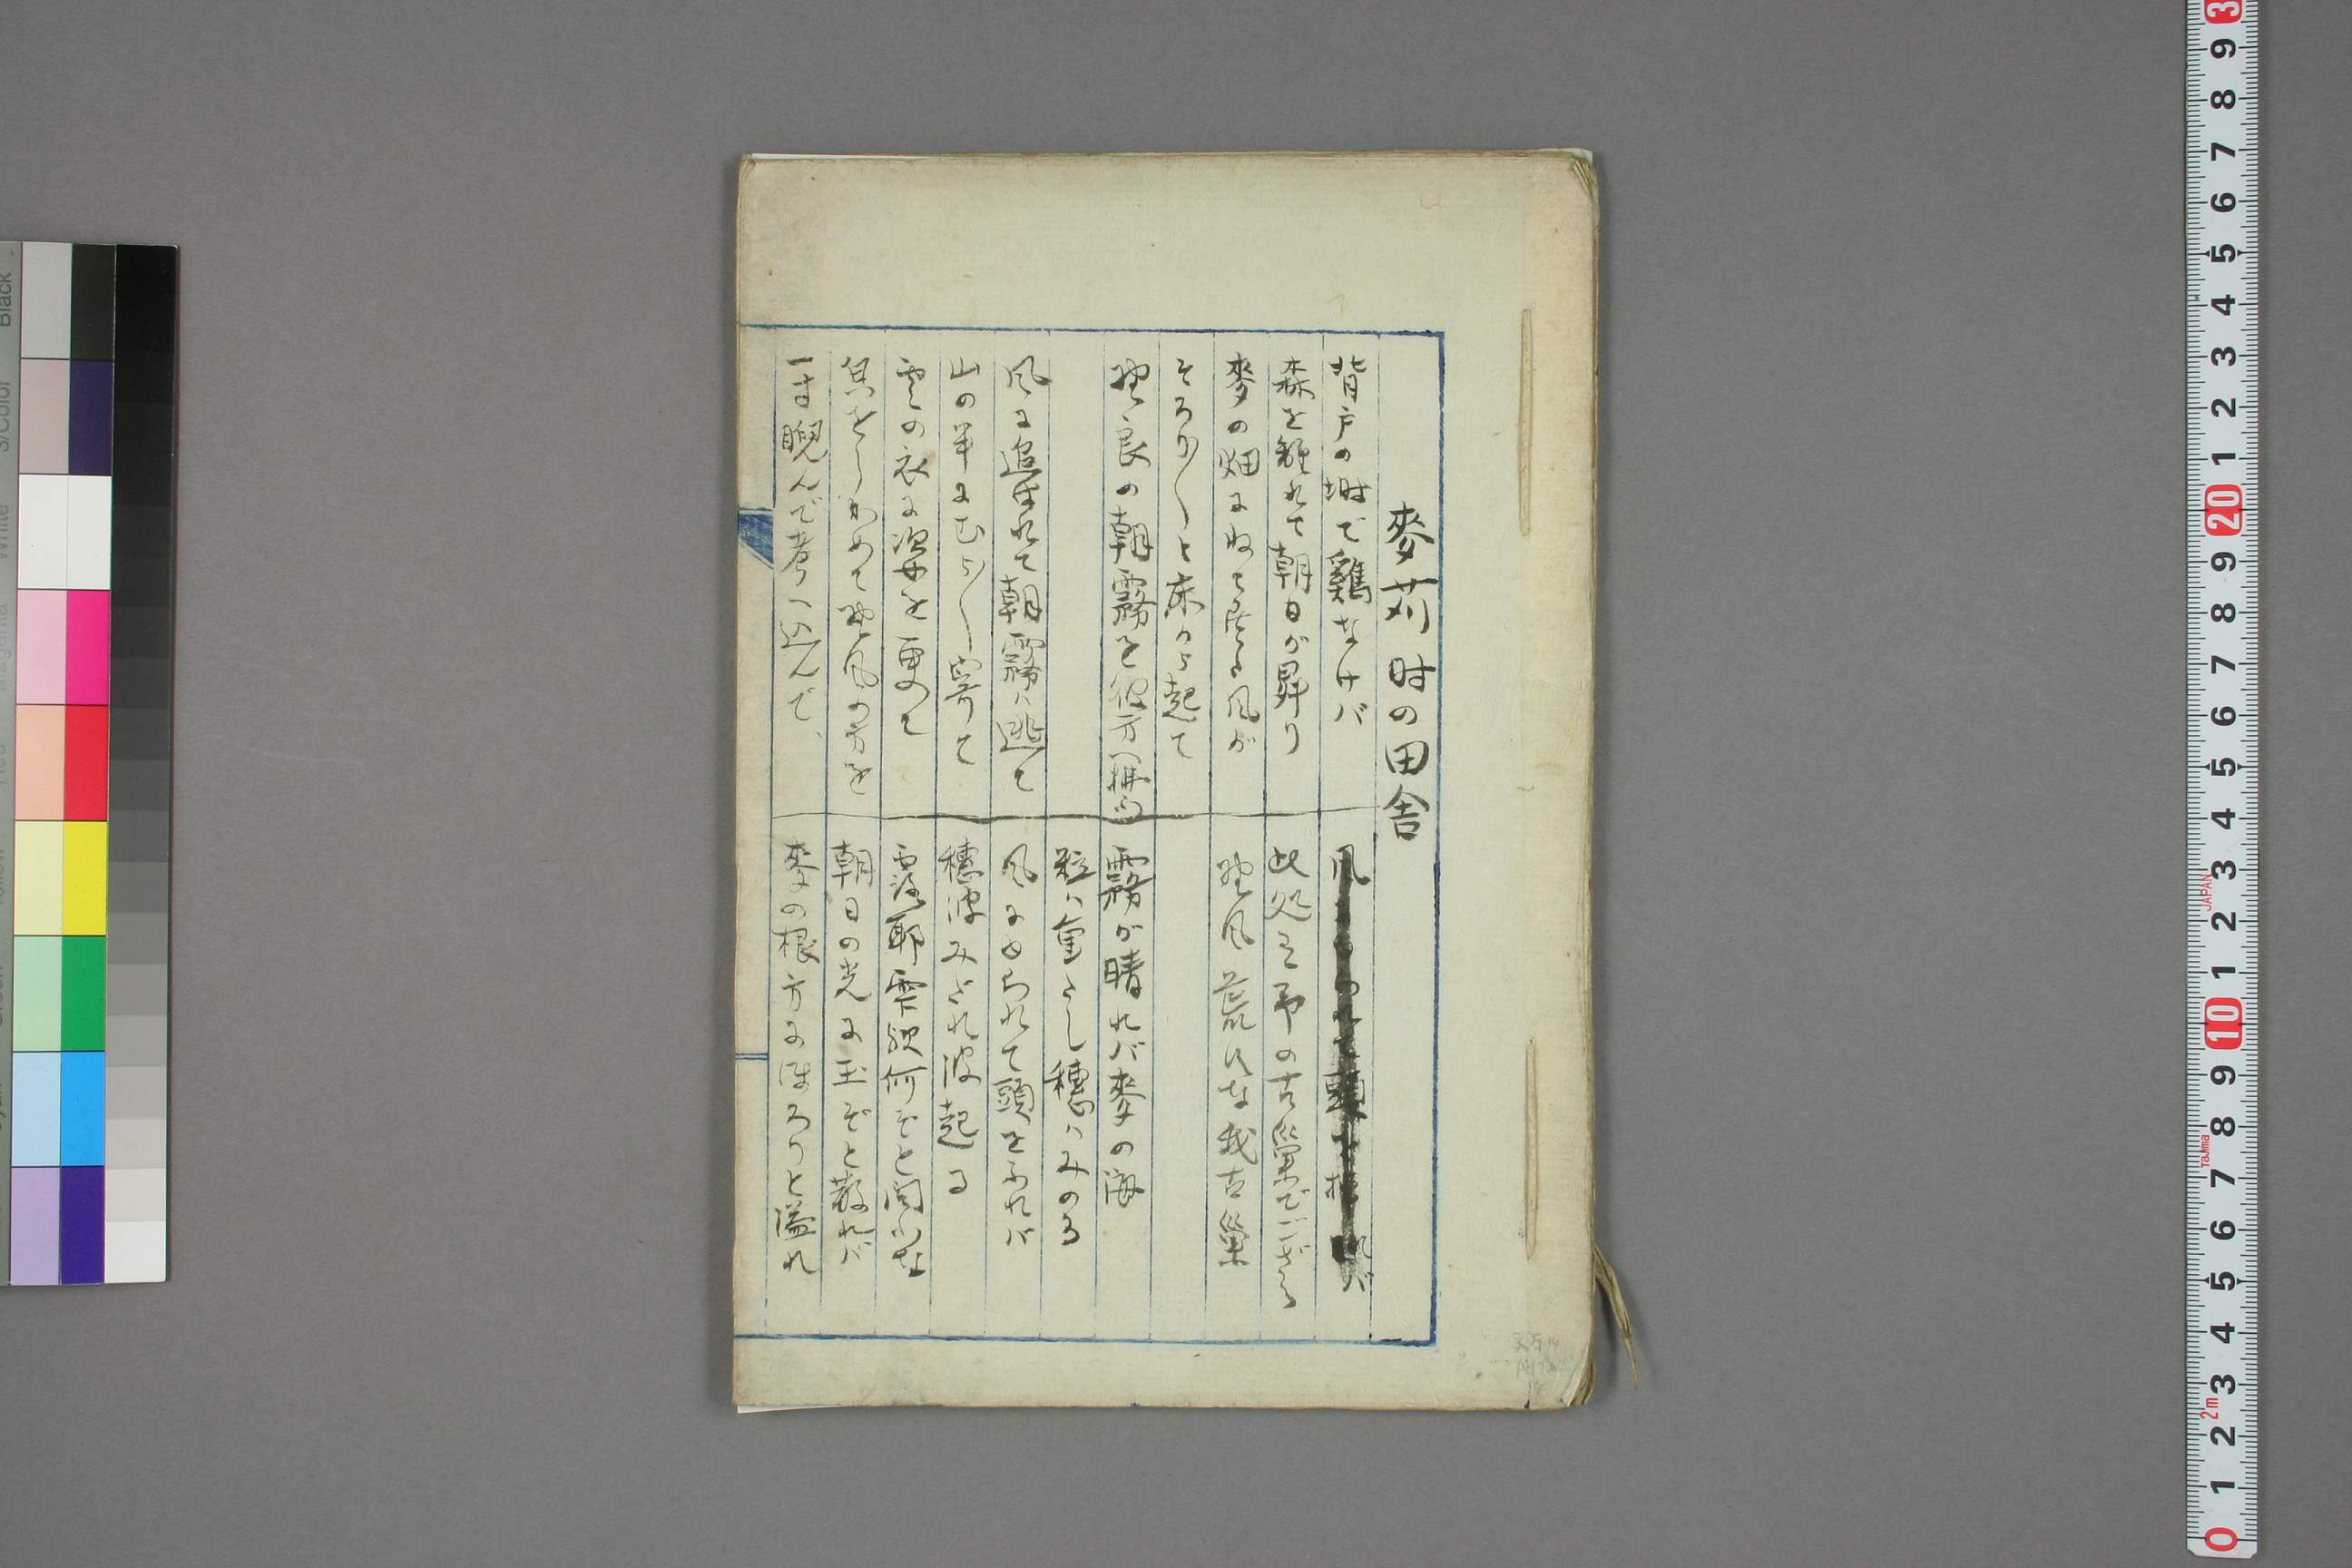 麥苅时の田舎
背戸の塒で鷄なけバ
森を離れて朝日が昇り
麥の畑にねて居る風が
そろり〱と床から起て
野良の朝霧を彼方へ拂ふ
風に追はれて朝霧ハ逃て
山の半にむら〱寄りて
雲の衣に姿を更めて
眉をしかめて野風の方を
一寸睨んで考へ込んで、
風
此処は予の古巣でござる
野風荒すな我古巣
霧が晴れバ麥の海
粒ハ重たし穗ハみのる
風にゆられて頭をふれバ
穗波みだれ波起る
露耶雫歟何ぞと問ふな
朝日の光に玉ぞと散れバ
麥の根方にほろりと溢れ